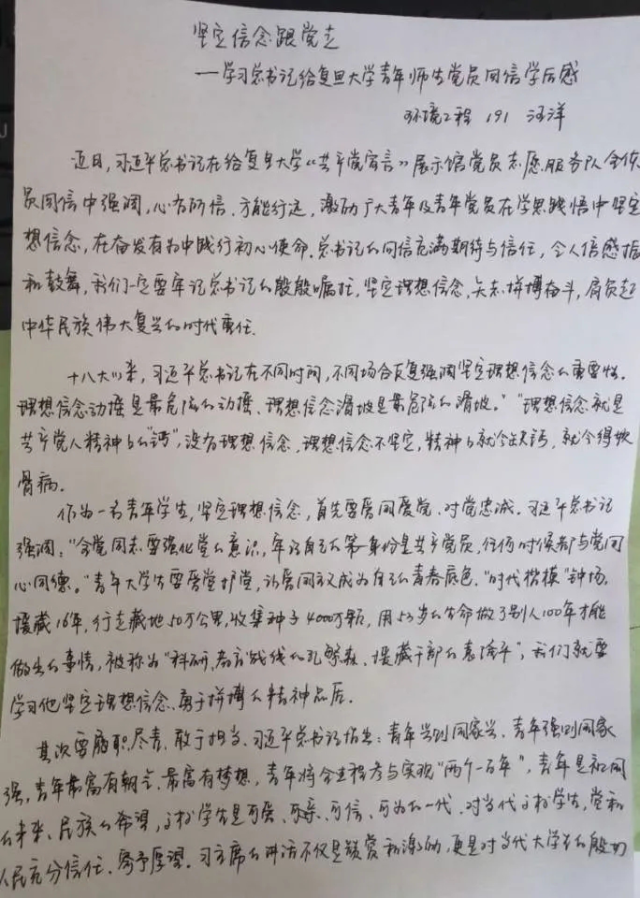 坚定信念跟党走
——学习总书记给复旦大学青年师生党员回信学后感
环境工程 191 汪洋
近日,习近平总书记在给复旦大学《共产党宣言》展示馆党员志愿服务队全体
队员回信中强调,心有所信、方能行远,激励广大青年及青年党员在学思践悟中坚定
想信念,在奋发有为中践行初心使命。总书记的回信充满期待与信任,令人倍感振
和鼓舞,我们一定要牢记总书记的殷殷嘱托,坚定理想信念,矢志拼搏奋斗,肩负起
中华民族伟大复兴的时代重任。
十八大以来,习近平总书记在不同时间,不同场合反复强调坚定理想信念的重要性。
理想信念动摇是最危险的动摇、理想信念滑坡是最危险的滑坡。""理想信念就是
共产党人精神上的"钙",没有理想信念,理想信念不坚定,精神上就会缺钙,就会得软
骨病。
作为一名青年学生,坚定理想信念,首先要爱国爱党、对党忠诚。习近平总书记
强调:"全党同志要强化党的意识,牢记自己的第一身份是共产党员,任何时候都与党同
心同德。"青年大学生要爱党护党,让爱国主义成为自己的青春底色。"时代楷模"钟扬
援藏16年,行走藏地50万公里,收集种子4000万颗,用53岁的生命做了别人100年才能
做出的事情,被称为"科研、教育战线的孔繁森、援藏干部的袁隆平",我们就要
学习他坚定理想信念、勇于拼搏的精神品质。
其次要履职尽责,敢于担当。习近平总书记指出:青年兴则国家兴,青年强则国家
强,青年最富有朝气、最富有梦想,青年将全过程参与实现"两个一百年",青年是祖国
的未来、民族的希望,高校学生是可爱、可亲、可信、可为的一代。对当代高校学生,党和
人民充分信任、寄予厚望。习主席的讲话不仅是鼓舞和激励,更是对当代大学生的殷切